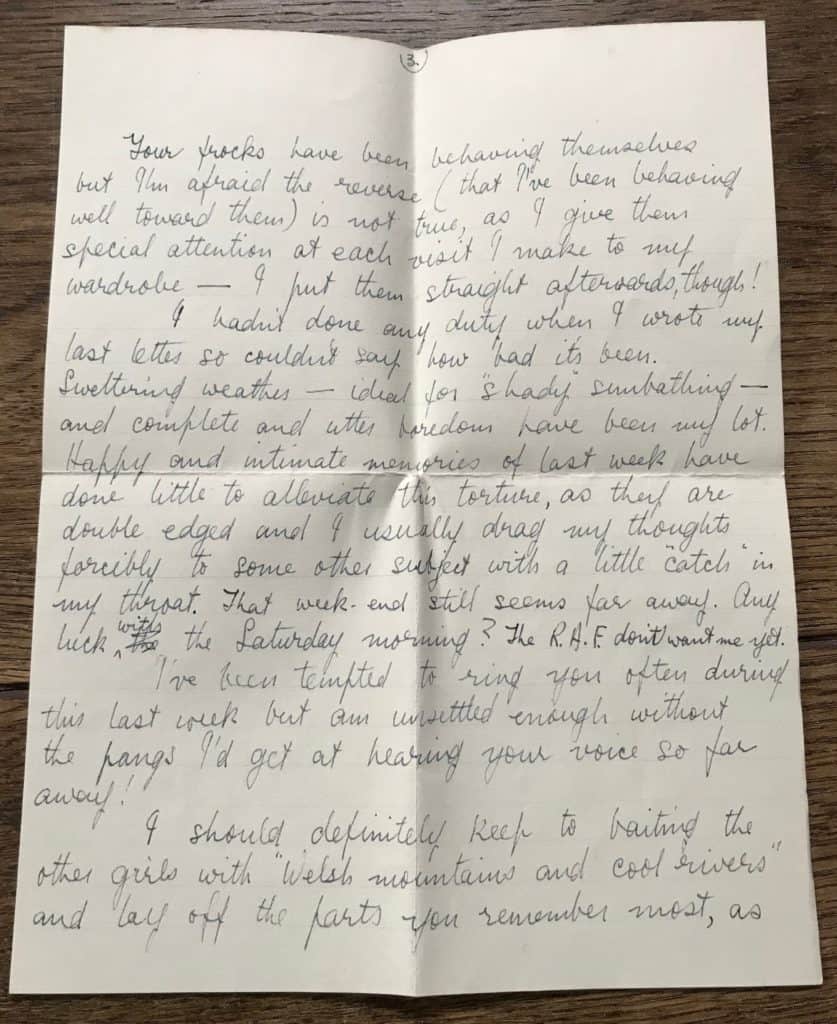 3.
Your frocks have been behaving themselves
but I'm afraid the reverse (that I've been behaving
well toward them) is not true, as I give them
special attention at each visit I make to my
wardrobe — I put them straight afterwards, though!
I hadn't done any duty when I wrote my
last letter so couldn't say how bad it's been.
Sweltering weather — ideal for "shady" sunbathing —
and complete and utter boredom have been my lot.
Happy and intimate memories of last week have
done little to alleviate this torture, as they are
double edged and I usually drag my thoughts
forcibly to some other subject with a little "catch" in
my throat. That week-end still seems far away. Any
luck with the Saturday morning? The R.A.F. don't want me yet.
I've been tempted to ring you often during
this last week but am unsettled enough without
the pangs I'd get at hearing your voice so far
away!
I should definitely keep to baiting the
other girls with "Welsh mountains and cool rivers"
and lay off the parts you remember most, as